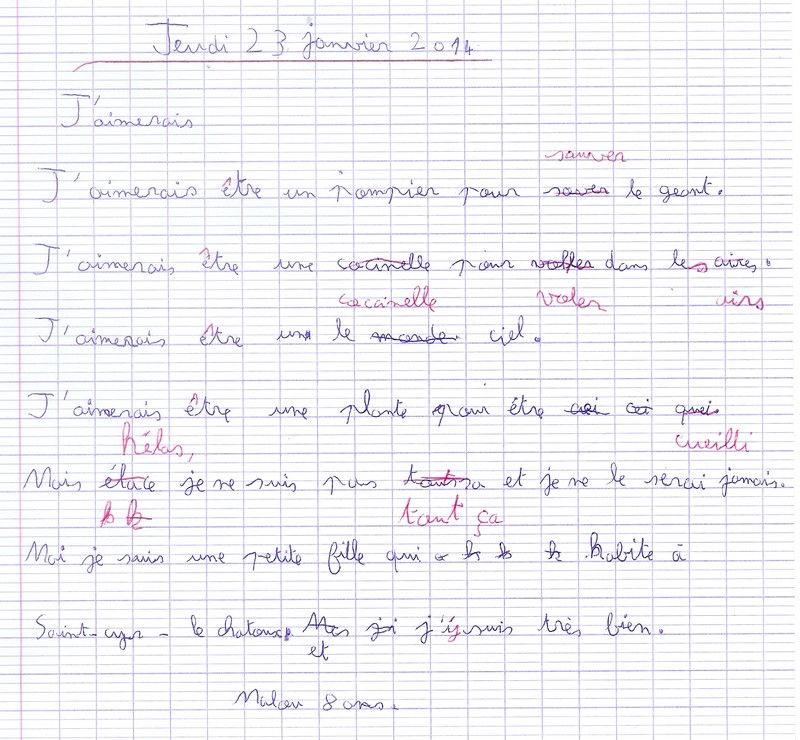 Jeudi 23 janvier 2014
J'aimerais
sauver
J'aimerais être un pompier pour sover le geant.
J'aimerais être une cocinelle pour voller dans les aires.
coccinelle voler airs
J'aimerais être un le monde ciel.
J'aimerais être une plante pour être
hélas, cueilli
Mais élace je ne suis pas tout sa et je ne le serai jamais.
tout ça
Moi je suis une petite fille qui habite à
Saint-cyr-le chatoux. j'y suis très bien.
et
Malou 8 ans.